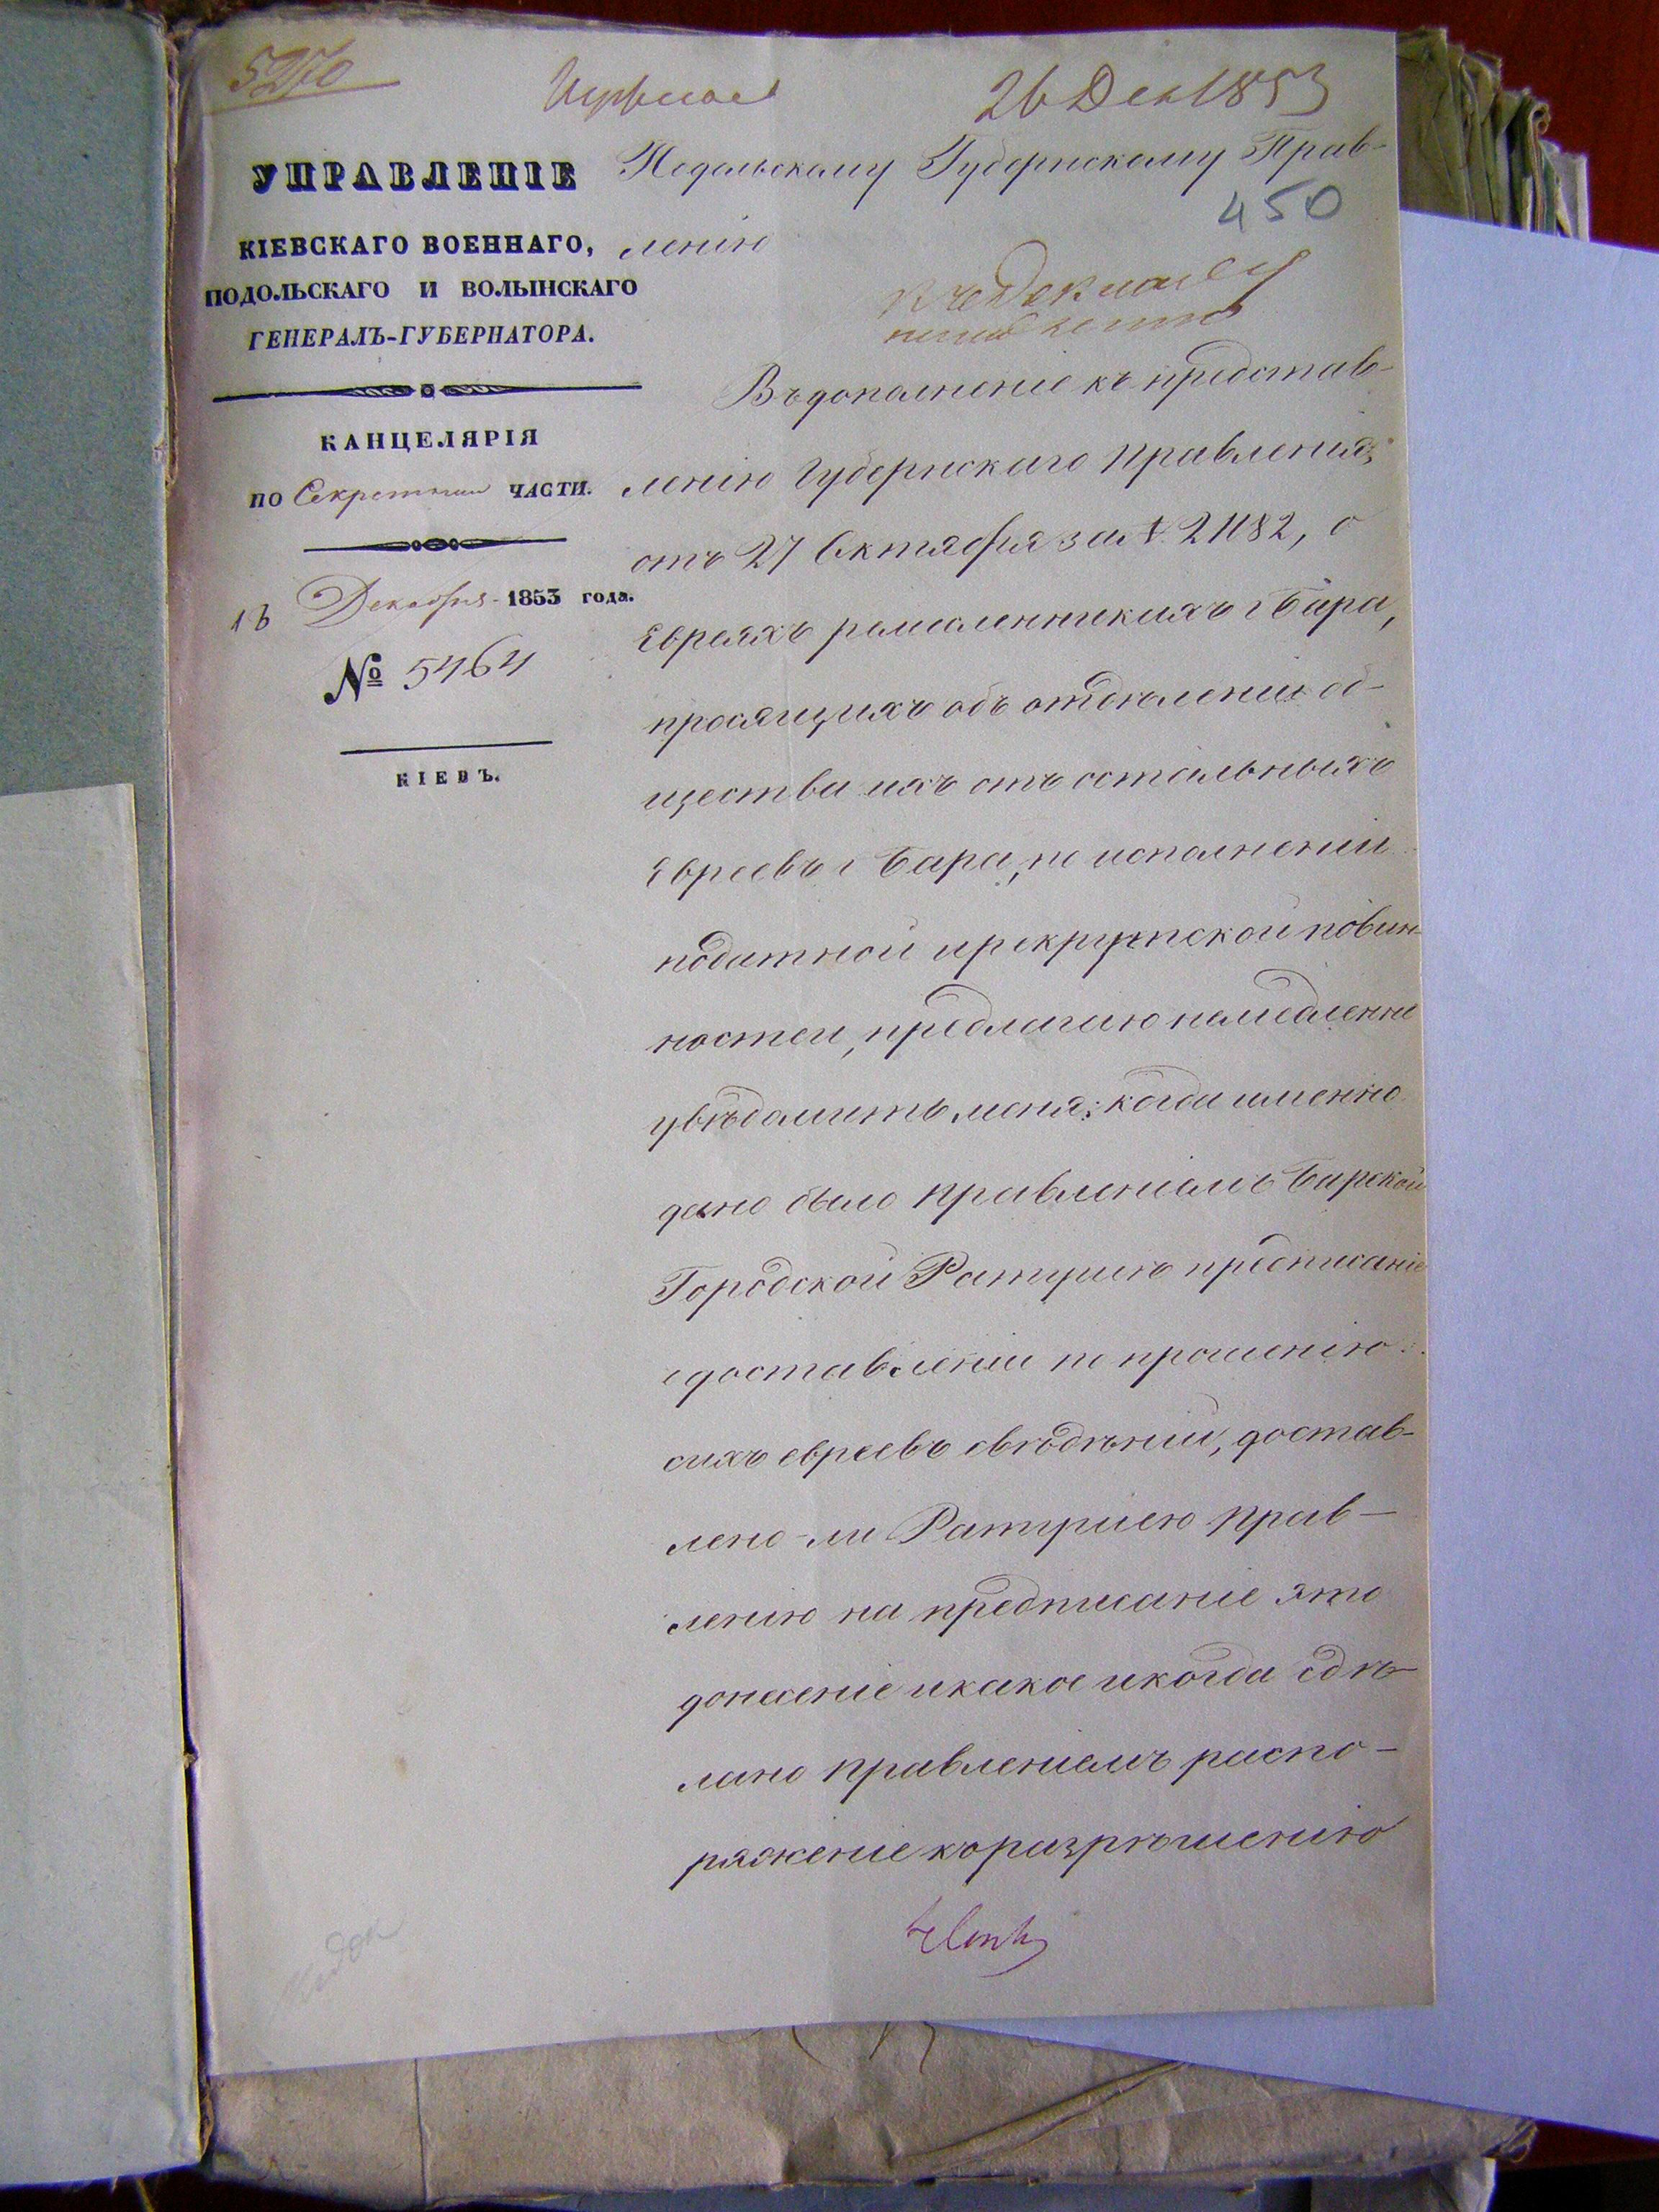 5270
26 Дек 1853
УПРАВЛЕНІЕ
КІЕВСКАГО ВОЕННАГО,
ПОДОЛЬСКАГО И ВОЛЫНСКАГО
ГЕНЕРАЛЪ-ГУБЕРНАТОРА.
КАНЦЕЛЯРІЯ
ПО Секретной ЧАСТИ.
Декабря 1853 года.
№ 5464
КІЕВЪ.
Подольскому Губернскому Прав-
450
ленію
Въ дополненіе къ представ-
ленію Губернскаго Правленія,
отъ 27 Октября за № 21182, о
евреяхъ ремесленникахъ г Бара,
просящихъ объ отдѣленіи об-
щества ихъ отъ остальныхъ
евреевъ г Бара, по исполненіи
податной и рекрутской повин-
ностей, предлагаю немедленно
увѣдомить меня: когда именно
дано было Правленіемъ Барской
Городской Ратушѣ предписаніе
о доставленіи по прошенію
сихъ евреевъ свѣдѣній, достав-
лено-ли Ратушею Прав-
ленію на предписаніе это
донесеніе и какое и когда сдѣ-
лано Правленіемъ распо-
ряженіе къ разрѣшенію